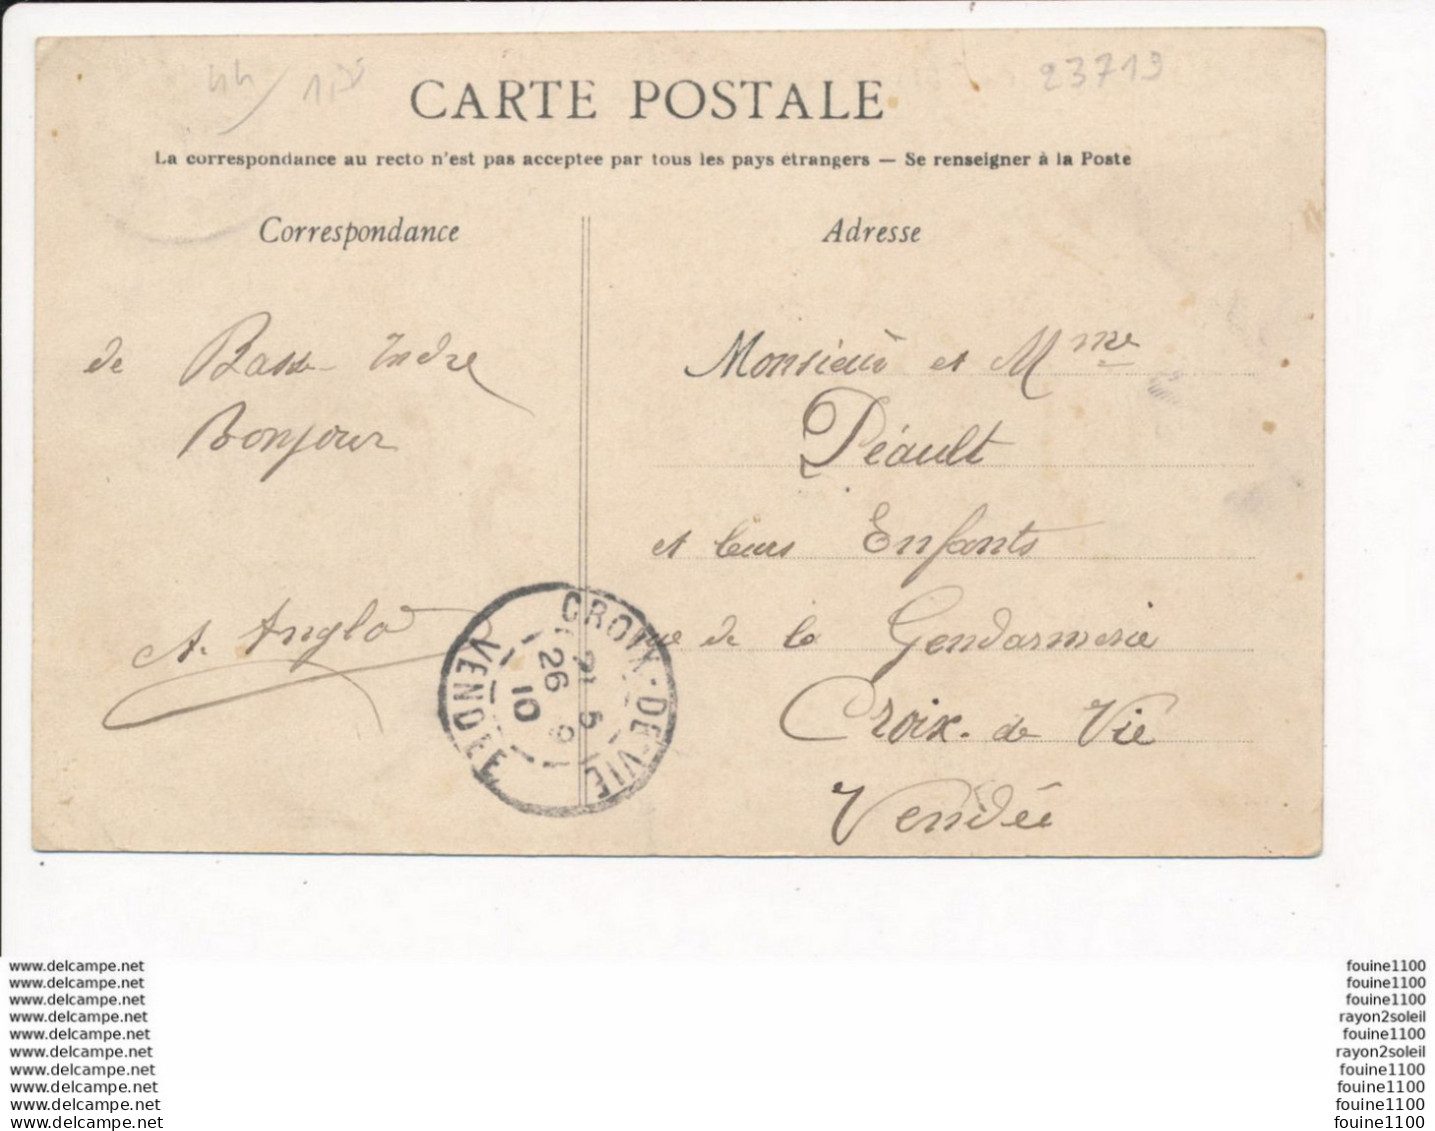 44/ 1,55
23719
CARTE POSTALE
La correspondance au recto n'est pas acceptee par tous les pays étrangers — Se renseigner à la Poste
Correspondance
Adresse
de Basse-Indre
Bonjour
A. Anglo
Monsieur et Mme
Déault
et leurs Enfants
rue de la Gendarmerie
Croix-de Vie
Vendée
CROIX-DE-VIE
VENDÉE
26
10
www.delcampe.net
www.delcampe.net
www.delcampe.net
www.delcampe.net
www.delcampe.net
www.delcampe.net
www.delcampe.net
www.delcampe.net
www.delcampe.net
www.delcampe.net
fouine1100
fouine1100
fouine1100
rayon2soleil
fouine1100
rayon2soleil
fouine1100
fouine1100
fouine1100
fouine1100